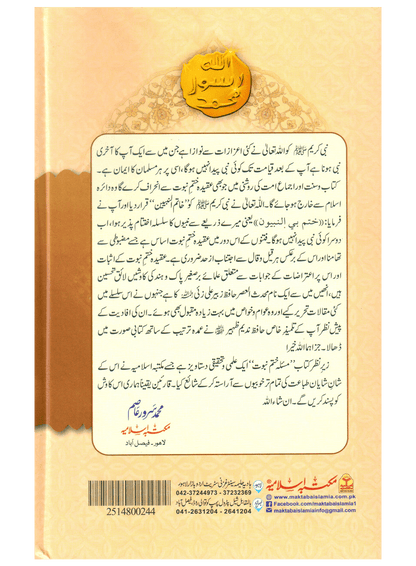 الله
رسول
محمد
نبی کریم ﷺ کو اللہ تعالیٰ نے کئی اعزازات سے نوازا ہے جن میں سے ایک آپ کا آخری
نبی ہونا ہے آپ کے بعد قیامت تک کوئی نبی پیدا نہیں ہوگا، اسی پر ہر مسلمان کا ایمان ہے۔
کتاب وسنت اور اجماع امت کی روشنی میں جو بھی عقیدہ ختم نبوت سے انحراف کرے گا وہ دائرہ
اسلام سے خارج ہو جائے گا۔ اللہ تعالیٰ نے نبی کریم ﷺ کو ”خاتم النبیین“ قرار دیا اور آپ نے
فرمایا: ((ختم بي النبيون)) یعنی میرے ذریعے سے نبیوں کا سلسلہ اختتام پذیر ہوا، اب
دوسرا کوئی نبی پیدا نہیں ہوگا۔ فتنوں کے اس دور میں عقیدہ ختم نبوت اساس ہے جسے مضبوطی سے
تھامنا اور اس کے برعکس ہر قیل و قال سے اجتناب از حد ضروری ہے۔ عقیدہ ختم نبوت کے اثبات
اور اس پر اعتراضات کے جوابات سے متعلق علمائے برصغیر پاک و ہند کی کاوشیں لائق تحسین
ہیں، انھیں میں سے ایک نام محدث العصر حافظ زبیر علی زئی رحمہ اللہ کا ہے جنہوں نے اس سلسلے میں
کئی مقالات تحریر کیے اور وہ عوام و خواص میں بہت زیادہ مقبول بھی ہوئے۔ ان کی افادیت کے
پیش نظر آپ کے تلمیذ خاص حافظ ندیم ظہیر نے عمدہ ترتیب کے ساتھ کتابی صورت میں
ڈھالا۔ جزاہما اللہ خیرا
زیر نظر کتاب ”مسئلہ ختم نبوت“ ایک علمی و تحقیقی دستاویز ہے جسے مکتبہ اسلامیہ نے اس کے
شایان شان طباعت کی تمام تر خوبیوں سے آراستہ کر کے شائع کیا۔ قارئین یقیناً ہماری اس کاوش
کو پسند کریں گے۔ ان شاء اللہ
محمد سرور عاصم
مکتبہ اسلامیہ
لاہور۔ فیصل آباد
2514800244
042-37244973 - 37232369
041-2631204 - 2641204
مکتبہ اسلامیہ
www.maktabaislamia.com.pk
Facebook.com/maktabaislamia1
maktabaislamiainfo@gmail.com